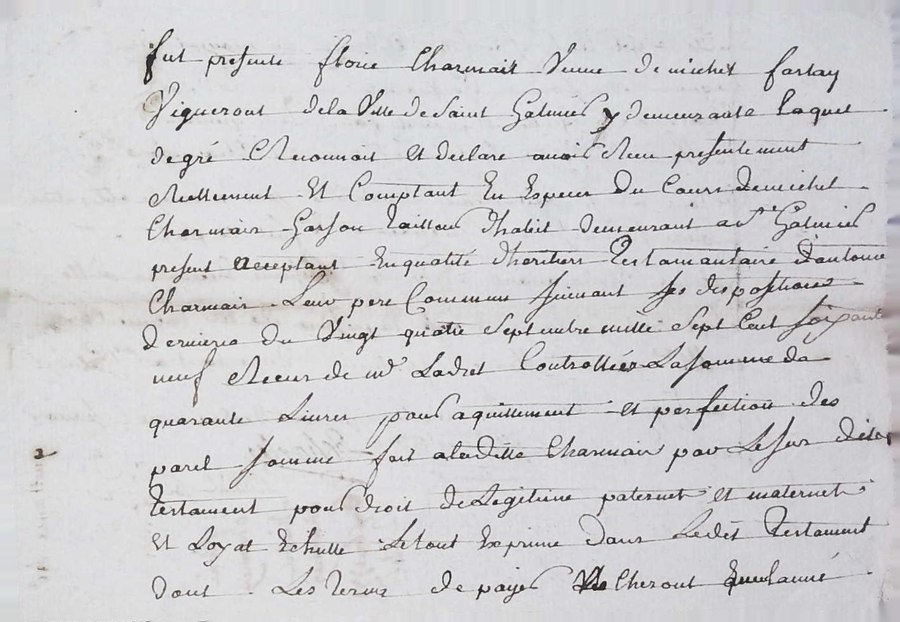 fut presente florie Charmair Veuve demichel farlay
Vigneront dela Ville de Saint Galmier y demeurante laquel
de gré Reconnoit et declare avoir Receu presentement
Reellement Et Comptant En Especes Du Cours demichel
Charmair Garson tailleur dhabit demeurant a st Galmier
present acceptant Enqualité dheritier Testamantaire dantoine
Charmair Leur pere Commun suivant ses dispositions
dernieres du Vingt quatre septembre mille sept Cent soixante
neuf Receus de me Ladret Controllées La somme de
quarante Livres pour aquittement et perfection des
parel somme fait a laditte Charmair par Le sus dit
Testament pour droit de Legitime paternel et maternel
Et Loyal Echutte Letout Exprimé dans Ledit Testament
dont Les termes de payer